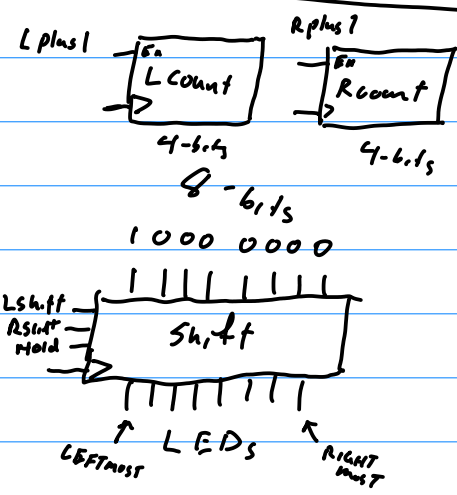 L plus 1
En
L Count
4-bits
Rplus 1
En
Rcount
4-bits
8-bits
1 0 0 0 0 0 0 0
Lshift
Rshift
Hold
Shift
LEFTMOST
LEDs
RIGHT
MOST